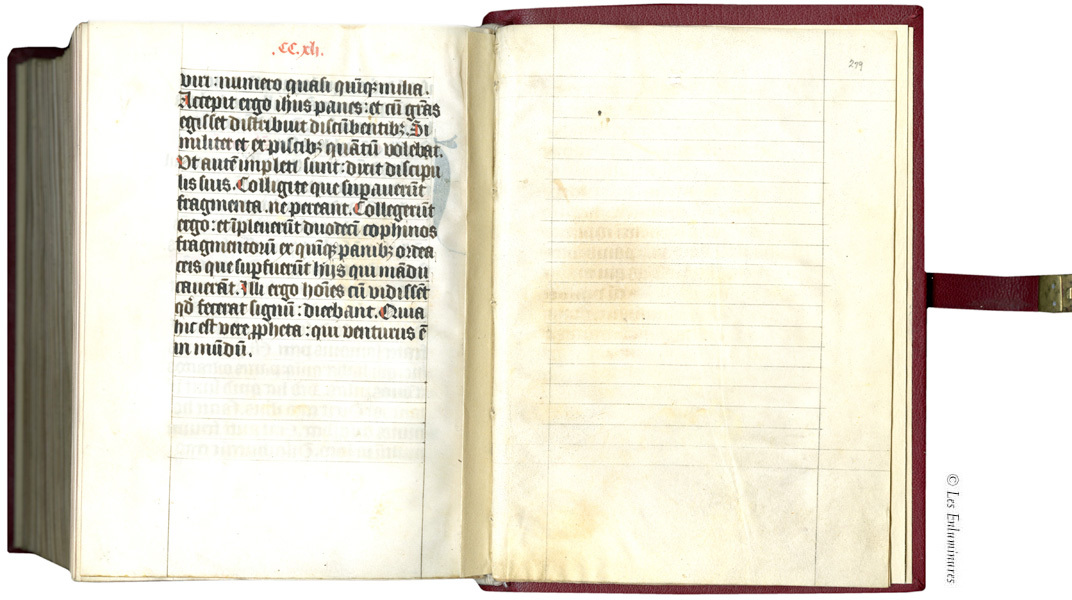 .CC.xli.
viri : numero quasi qui̅q; milia.
Accepit ergo ih̅us panes : et cu̅ gr̅as
egisset distribuit discu̅bentib;. Si
militer et ex piscib; quãtu̅ volebat.
Vt aute̅ impleti sunt : dixit discipu
lis suis. Colligite que sup̱aueru̅t
fragmenta . ne pereant. Collegeru̅t
ergo : et i̅pleueru̅t duodeci̅ cophinos
fragmentoru̅ ex qui̅q; panib; ordea
ceis que sup̱fueru̅t hijs qui ma̅du
cauera̅t. Illi ergo hoi̅es cu̅ vidisse̅t
qd̾ fecerat signu̅ : dicebant. Quia
hic est vere ꝓpheta : qui venturus e̅
in mu̅du̅.
279
© Les Enluminures